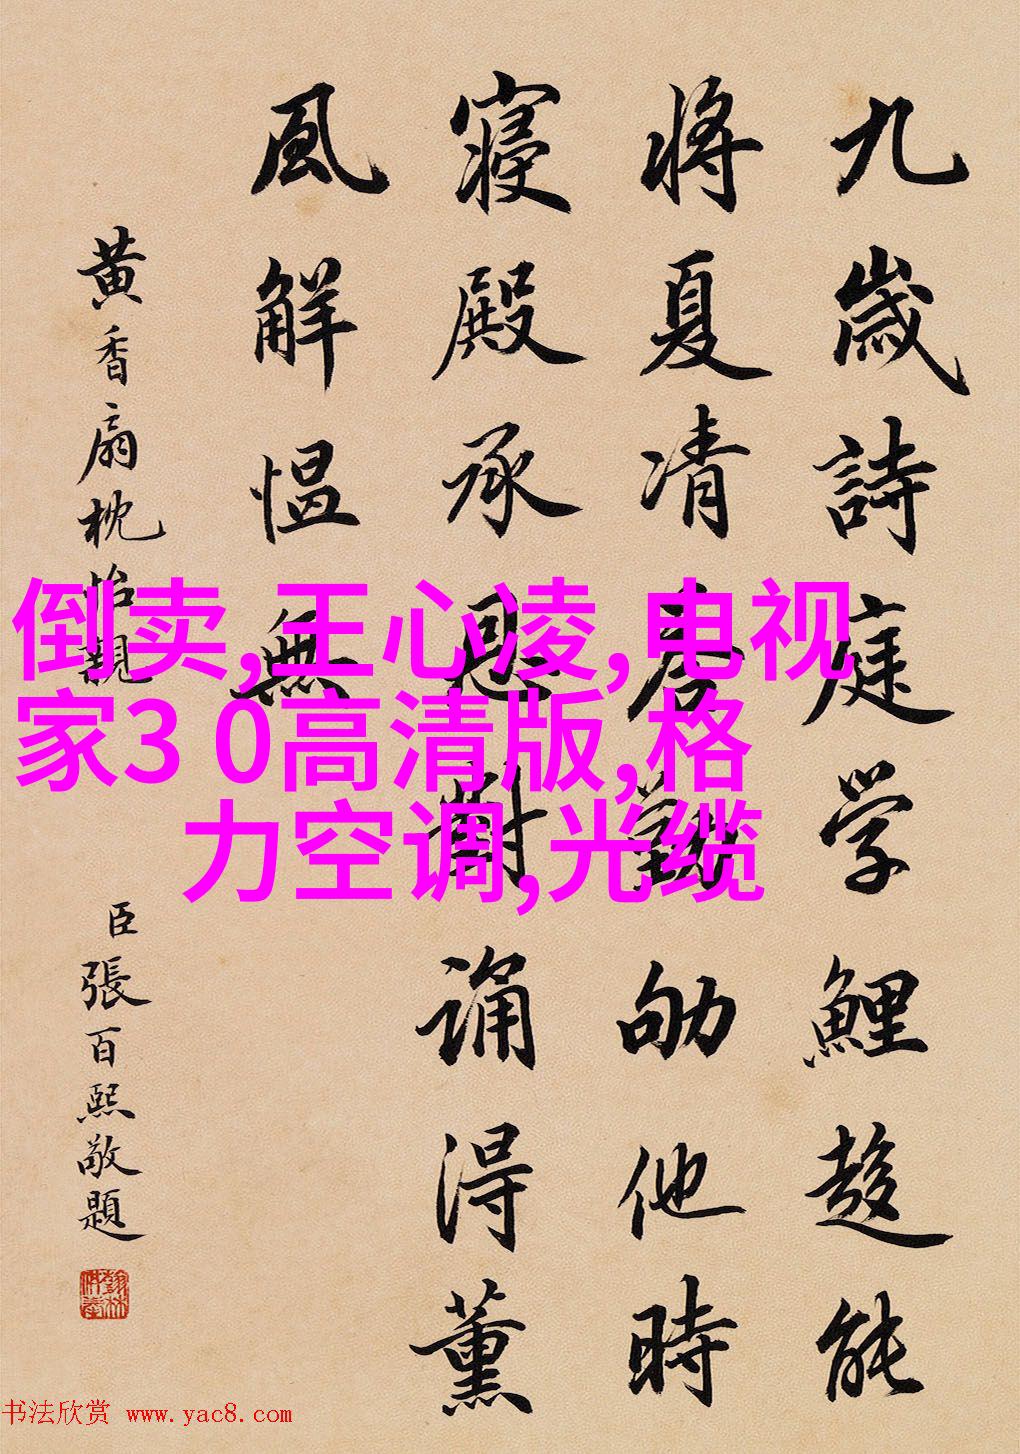 九歲詩庭学鯉趍能
將夏凊勤劬他時
寢殿承恩對誦得薰
風解愠無
黄香扇枕怡親
臣張百熙敬題
倒卖,王心凌,电视
家3 0高清版,格
力空调,光缆
书法欣赏 www.yac8.com